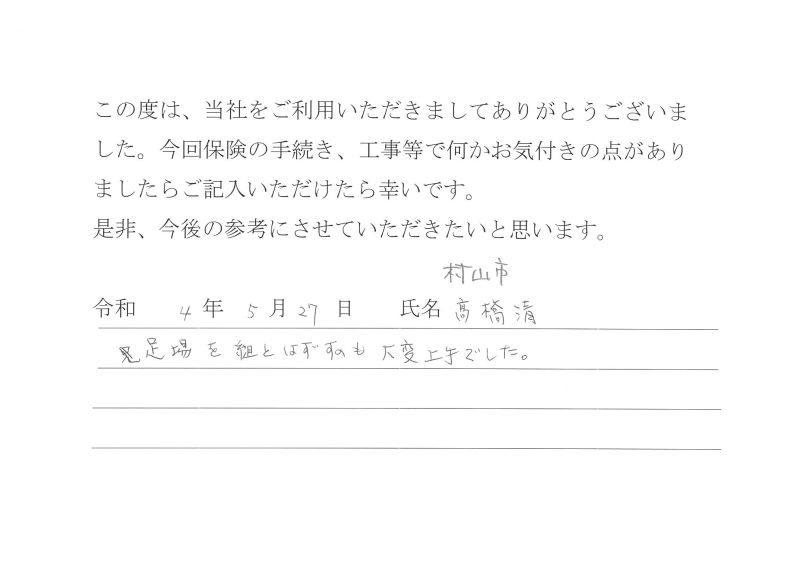 この度は、当社をご利用いただきましてありがとうございま
した。今回保険の手続き、工事等で何かお気付きの点があり
ましたらご記入いただけたら幸いです。
是非、今後の参考にさせていただきたいと思います。
村山市
令和 4 年 5 月 27 日 氏名 髙橋清
足場を組とはずすのも大変上手でした。